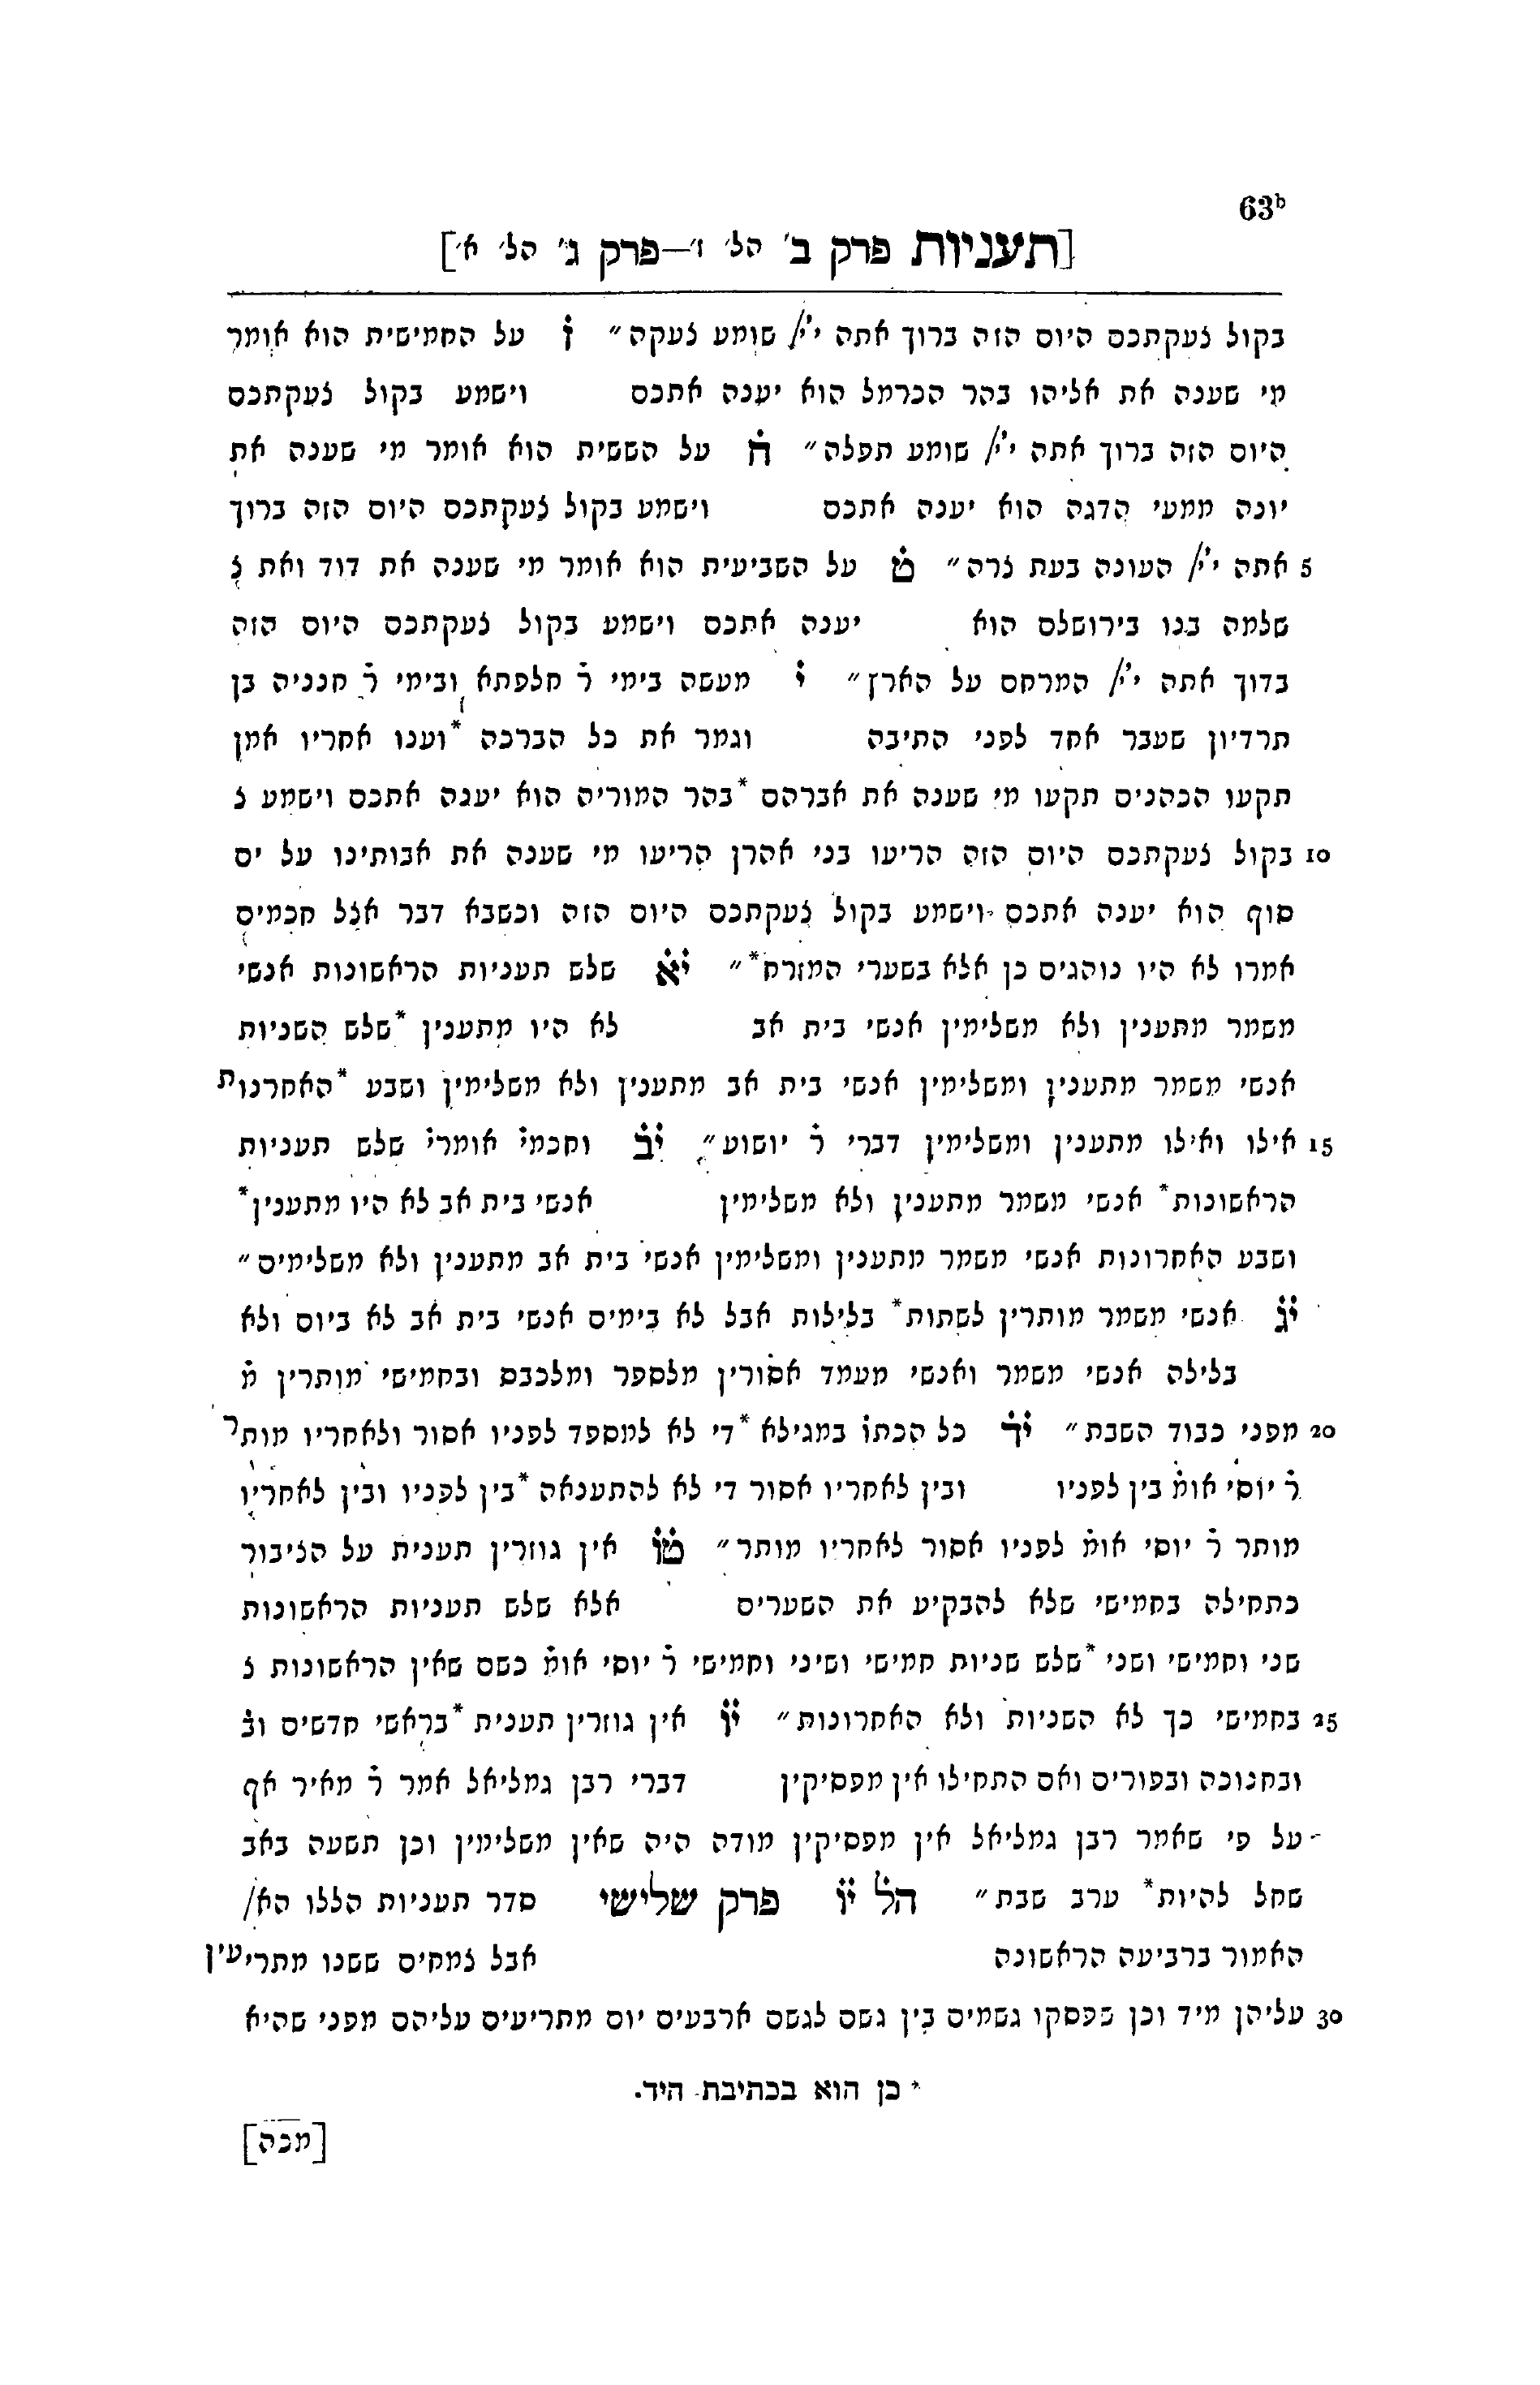 63b
[תעניות פרק ב' הל' ז'—פרק ג' הל' א']
בקול צעקתכם היום הזה ברוך אתה י'י/ שומע צעקה״ ז̇ על החמישית הוא אומר
מי שענה את אליהו בהר הכרמל הוא יענה אתכם וישמע בקול צעקתכם
היום הזה ברוך אתה י'י/ שומע תפלה״ ח̇ על הששית הוא אומר מי שענה את
יונה ממעי הדגה הוא יענה אתכם וישמע בקול צעקתכם היום הזה ברוך
5 אתה י'י/ העונה בעת צרה״ ט̇ על השביעית הוא אומר מי שענה את דוד ואת צ
שלמה בנו בירושלם הוא יענה אתכם וישמע בקול צעקתכם היום הזה
בדוך אתה י'י/ המרחם על הארץ״ י̇ מעשה בימי ר̇ חלפתא ובימי ר̇ חנניה בן
תרדיון שעבר אחד לפני התיבה וגמר את כל הברכה *וענו אחריו אמן
תקעו הכהנים תקעו מי שענה את אברהם *בהר המוריה הוא יענה אתכם וישמע צ
10 בקול צעקתכם היום הזה הריעו בני אהרן הריעו מי שענה את אבותינו על ים
סוף הוא יענה אתכם וישמע בקול צעקתכם היום הזה וכשבא דבר אצל חכמים
אמרו לא היו נוהגים כן אלא בשערי המזרח*״ י̇א̇ שלש תעניות הראשונות אנשי
משמר מתענין ולא משלימין אנשי בית אב לא היו מתענין *שלש השניות
אנשי משמר מתענין ומשלימין אנשי בית אב מתענין ולא משלימין ושבע *האחרנות
15 אילו ואילו מתענין ומשלימין דברי ר̇ יושוע״ י̇ב̇ וחכמי̇ אומרי̇ שלש תעניות
הראשונות* אנשי משמר מתענין ולא משלימין אנשי בית אב לא היו מתענין*
ושבע האחרונות אנשי משמר מתענין ומשלימין אנשי בית אב מתענין ולא משלימים״
י̇ג̇ אנשי משמר מותרין לשתות* בלילות אבל לא בימים אנשי בית אב לא ביום ולא
בלילה אנשי משמר ואנשי מעמד אסורין מלספר ומלכבס ובחמישי מותרין מ̇
20 מפני כבוד השבת״ י̇ד̇ כל הכתו̇ במגילא *די לא למספד לפניו אסור ולאחריו מותר
ר̇ יוסי אומ̇ בין לפניו ובין לאחריו אסור די לא להתענאה *בין לפניו ובין לאחריו
מותר ר̇ יוסי אומ̇ לפניו אסור לאחריו מותר״ ט̇ו̇ אין גוזרין תענית על הציבור
כתחילה בחמישי שלא להבקיע את השערים אלא שלש תעניות הראשונות
שני וחמישי ושני *שלש שניות חמישי ושיני וחמישי ר̇ יוסי אומ̇ כשם שאין הראשונות צ
25 בחמישי כך לא השניות ולא האחרונות״ י̇ו̇ אין גוזרין תענית *בראשי חדשים וב̇
ובחנוכה ובפורים ואם התחילו אין מפסיקין דברי רבן גמליאל אמר ר̇ מאיר אף
על פי שאמר רבן גמליאל אין מפסיקין מודה היה שאין משלימין וכן תשעה באב
שחל להיות* ערב שבת״ הל̇ י̇ו̇ פרק שלישי סדר תעניות הללו הא/
האמור ברביעה הראשונה אבל צמחים ששנו מתריעין
30 עליהן מיד וכן פפסקו גשמים בין גשם לגשם ארבעים יום מתריעים עליהם מפני שהיא
* כן הוא בכתיבת היד.
[מכה]